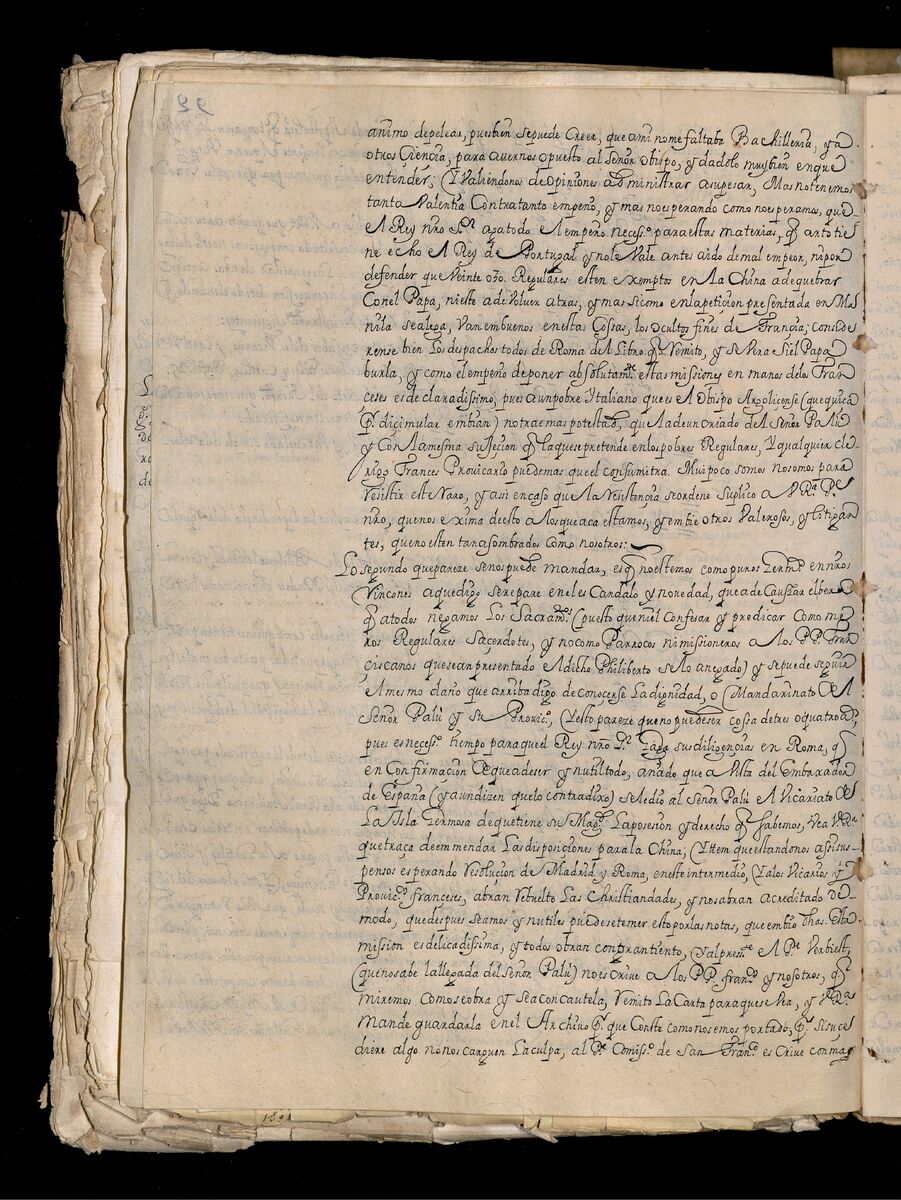 animo depelear, puesbien sepuede Creer, que ami nome faltaba Bachilleria, y a
otros Ciencia, para avernos opuesto al Señor Obispo, y dadolo muy bien enque
entender; (Y Valiendonos de Opiniones ad ministrar asupesar, Mas notenemos
tanta Valentia Contratanto empeño, y mas noesperando como noesperamos, que
El Rey nr̃o S.r aga todo El empeño necess.o para estas materias, q̃ antotie
ne echo El Rey de Portugal y nole Vale antes aido demal empeor, nipor
defender que Veinte o 30. Regulares esten exemptos en la China adequebrar
Conel Papa, nieste adeVolver atras, y mas sicomo enlapeticion presentada en Ma
nila sealega, Van embueltos enestas Cossas, los ocultos fines de Francia; Conside
rense bien Los despachos todos de Roma del Libro q̃ Remito, y se Vera Si el Papa
burla, y como el empeño deponer absolutam.te estas missiones en manos delos Fran
ceses es de claradissimo, pues aunpobre Ytaliano que es El Obispo Argolicense (que quiça
p.r dicimular embian) notrae mas potestad, que la de un criado del Señor Palú
y Con Lamesma sujecion q̃ laquesepretende enlos pobres Regulares, Y qualquier cle
rigo Frances Provicario puede mas que el consumitra. Mui poco somos nosotros para
resistir este Vaso, y asi encaso que la resistencia seordene suplico a V.Ra P.e
nr̃o, quenos exima deesto a los que aca estamos, y embie otros Valerosos, y litigan
tes, que no esten tan asombrados como nosotros:
Lo segundo que pareze senos puede mandar, es q̃ noestemos como puros Ter.nos en nr̃os
Rincones aque digo se repare en el es Candalo y novedad, que a de Causar el ber
q̃ atodos negamos Los Sacram.tos (puesto que ni el Confesar y predicar Como me
ros Regulares Sacerdotes, y nocomo Parrocos ni missioneros a los PP. Fran
ciscanos que secan presentado El dicho Philiberto se lo anegado) y se puede seguir
El mesmo daño que arriba digo de conocerse La dignidad, o (Mandarinato del
Señor Palú y su Provic.o, (Y esto pareze que no puede ser cossa de tres o quatro a.s
pues es necess.o tiempo para que el Rey nr̃o S.r Haga sus diligencias en Roma, q̃
en Confirmacion de que a de ser y nutil todo, añado que a Vista del Embaxador
de España (y aun dizen que lo contradixo) se le dio al Señor Palú el Vicariato de
La Isla Hermosa de que tiene su Mag.d La posesion y derecho q̃ sabemos, Vea V.Ra
que traça de emmendar Las disposiciones para la China; (Yttem que estandonos assi sus-
pensos esperando resolucion de Madrid y Roma, en este intermedio, (Y a los Vicarios y
Provic.os franceses, abran rebuelto Las Christiandades, y nos abran acreditado de
modo, que despues seamos ynutiles puede se temer esto por las notas, que embio thas. Esta
mission es delicadissima, y todos obran con gran tiento, (Y al pres.te El P.e Verbiest,
(que no sabe la llegada del Señor Palú) nos escrive a los PP. fran.os y nosotros, q̃
miremos como se obra y sea con cautela, remito La Carta para que se Vea, y V. Ra
mande guardarla en el Archivo p.r que Conste como nos emos portado, p.r si suce
diere algo no nos carguen La culpa, al P.e Comiss.o de San Fran.co escrive con mas
1501